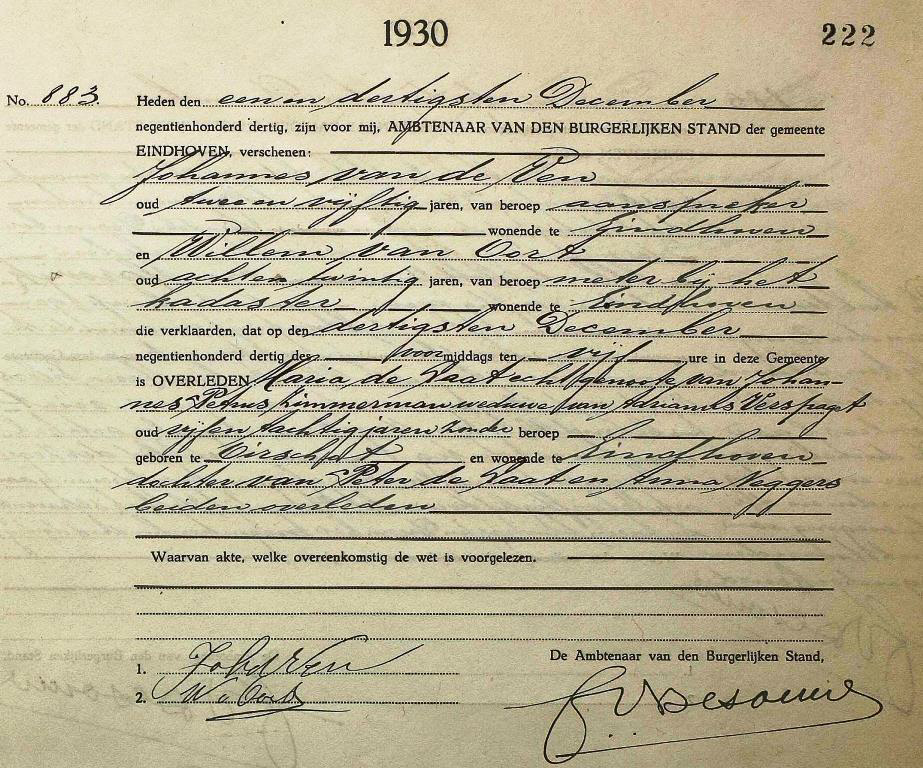 1930
222
No. 883. Heden den een en dertigsten December
negentienhonderd dertig, zijn voor mij, AMBTENAAR VAN DEN BURGERLIJKEN STAND der gemeente
EINDHOVEN, verschenen:
Johannes van de Ven
oud twee en vijftig jaren, van beroep aanspreker
wonende te Eindhoven
en Willem van Oort
oud acht en twintig jaren, van beroep meter bij het
kadaster wonende te Eindhoven
die verklaarden, dat op den dertigsten December
negentienhonderd dertig des voormiddags ten vijf ure in deze Gemeente
is OVERLEDEN Maria de Laat echtgenoote van Johan-
nes Petrus Zimmerman weduwe van Adrianus Verspaget
oud vijf en tachtig jaren zonder beroep
geboren te Oirschot en wonende te Eindhoven
dochter van Peter de Laat en Anna Neggers
beiden overleden
Waarvan akte, welke overeenkomstig de wet is voorgelezen.
De Ambtenaar van den Burgerlijken Stand,
1. Joh v d Ven
2. W v Oort